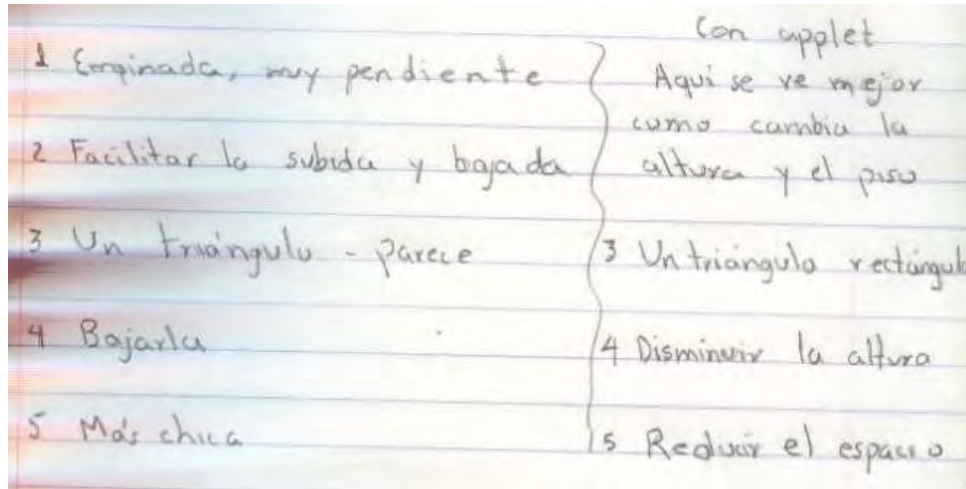 1 Enginada, muy pendiente
2 Facilitar la subida y bajada
3 Un triángulo - parece
4 Bajarla
5 Más chica
Con applet
Aqui se ve mejor
como cambia la
altura y el piso
3 Un triángulo rectángul
4 Disminuir la altura
5 Reducir el espacio